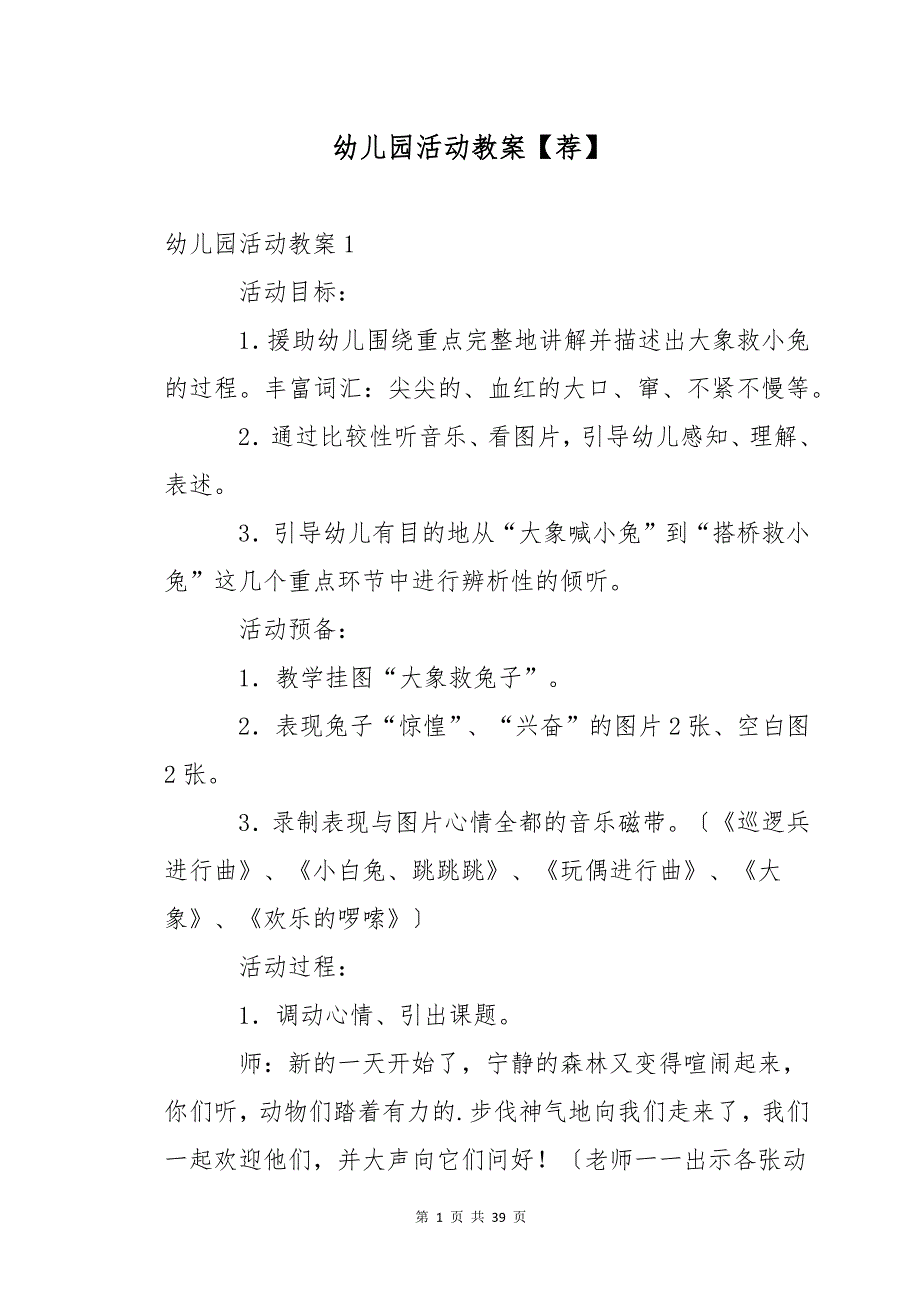 幼儿园活动教案【荐】
幼儿园活动教案1
活动目标：
1.援助幼儿围绕重点完整地讲解并描述出大象救小兔
的过程。丰富词汇：尖尖的、血红的大口、窜、不紧不慢等。
2．通过比较性听音乐、看图片，引导幼儿感知、理解、
表述。
3．引导幼儿有目的地从“大象喊小兔”到“搭桥救小
兔”这几个重点环节中进行辨析性的倾听。
活动预备：
1．教学挂图“大象救兔子”。
2．表现兔子“惊惶”、“兴奋”的图片2张、空白图
2张。
3．录制表现与图片心情全都的音乐磁带。〔《巡逻兵
进行曲》、《小白兔、跳跳跳》、《玩偶进行曲》、《大
象》、《欢乐的啰嗦》〕
活动过程：
1．调动心情、引出课题。
师：新的一天开始了，宁静的森林又变得喧闹起来，
你们听，动物们踏着有力的.步伐神气地向我们走来了，我们
一起欢迎他们，并大声向它们问好！〔老师一一出示各张动
第 1 页 共 39 页